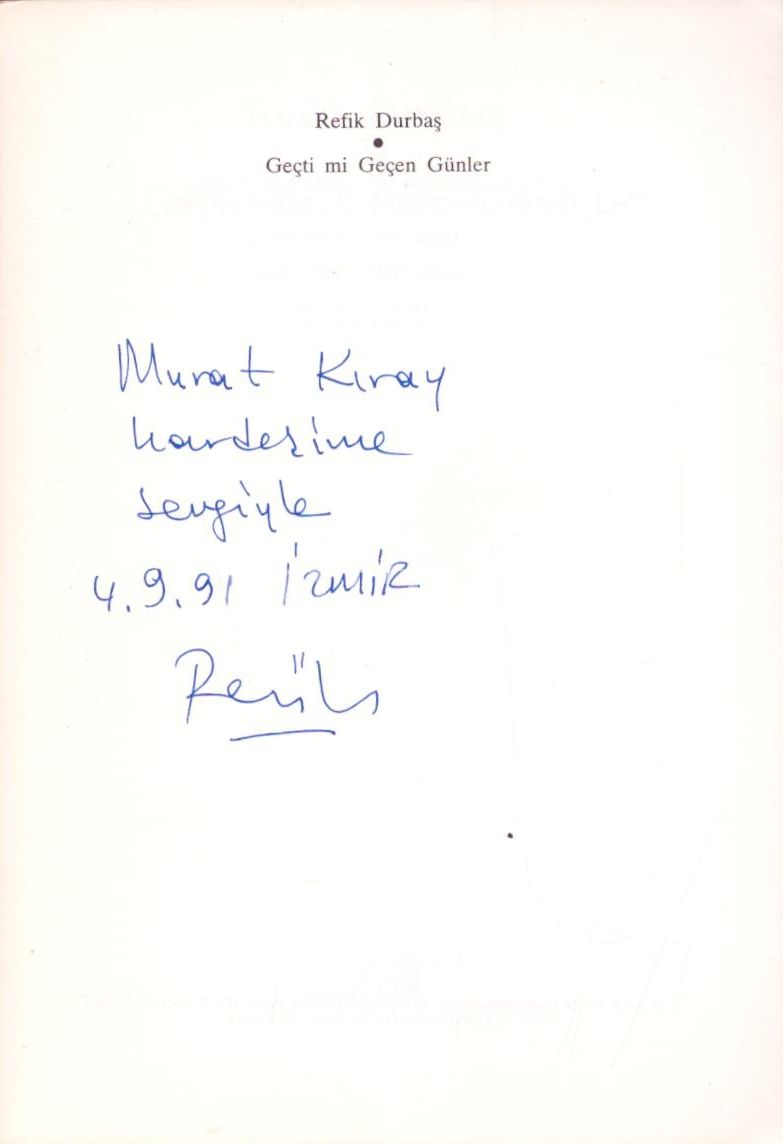 Refik Durbaş
●
Geçti mi Geçen Günler
Murat Kıray
kardeşime
sevgiyle
4.9.91 İzmir